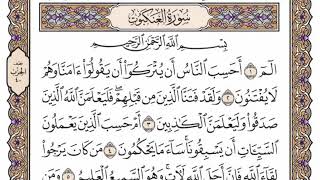 سُورَةُ العَنكَبُوتِ
بِسْمِ ٱللَّهِ ٱلرَّحْمَٰنِ ٱلرَّحِيمِ
الٓمٓ ١ أَحَسِبَ ٱلنَّاسُ أَن يُتْرَكُوٓا۟ أَن يَقُولُوٓا۟ ءَامَنَّا وَهُمْ
لَا يُفْتَنُونَ ٢ وَلَقَدْ فَتَنَّا ٱلَّذِينَ مِن قَبْلِهِمْ فَلَيَعْلَمَنَّ ٱللَّهُ ٱلَّذِينَ
صَدَقُوا۟ وَلَيَعْلَمَنَّ ٱلْكَٰذِبِينَ ٣ أَمْ حَسِبَ ٱلَّذِينَ يَعْمَلُونَ
ٱلسَّيِّـَٔاتِ أَن يَسْبِقُونَا سَآءَ مَا يَحْكُمُونَ ٤ مَن كَانَ يَرْجُوا۟
لِقَآءَ ٱللَّهِ فَإِنَّ أَجَلَ ٱللَّهِ لَـَٔاتٍ وَهُوَ ٱلسَّمِيعُ ٱلْعَلِيمُ ٥